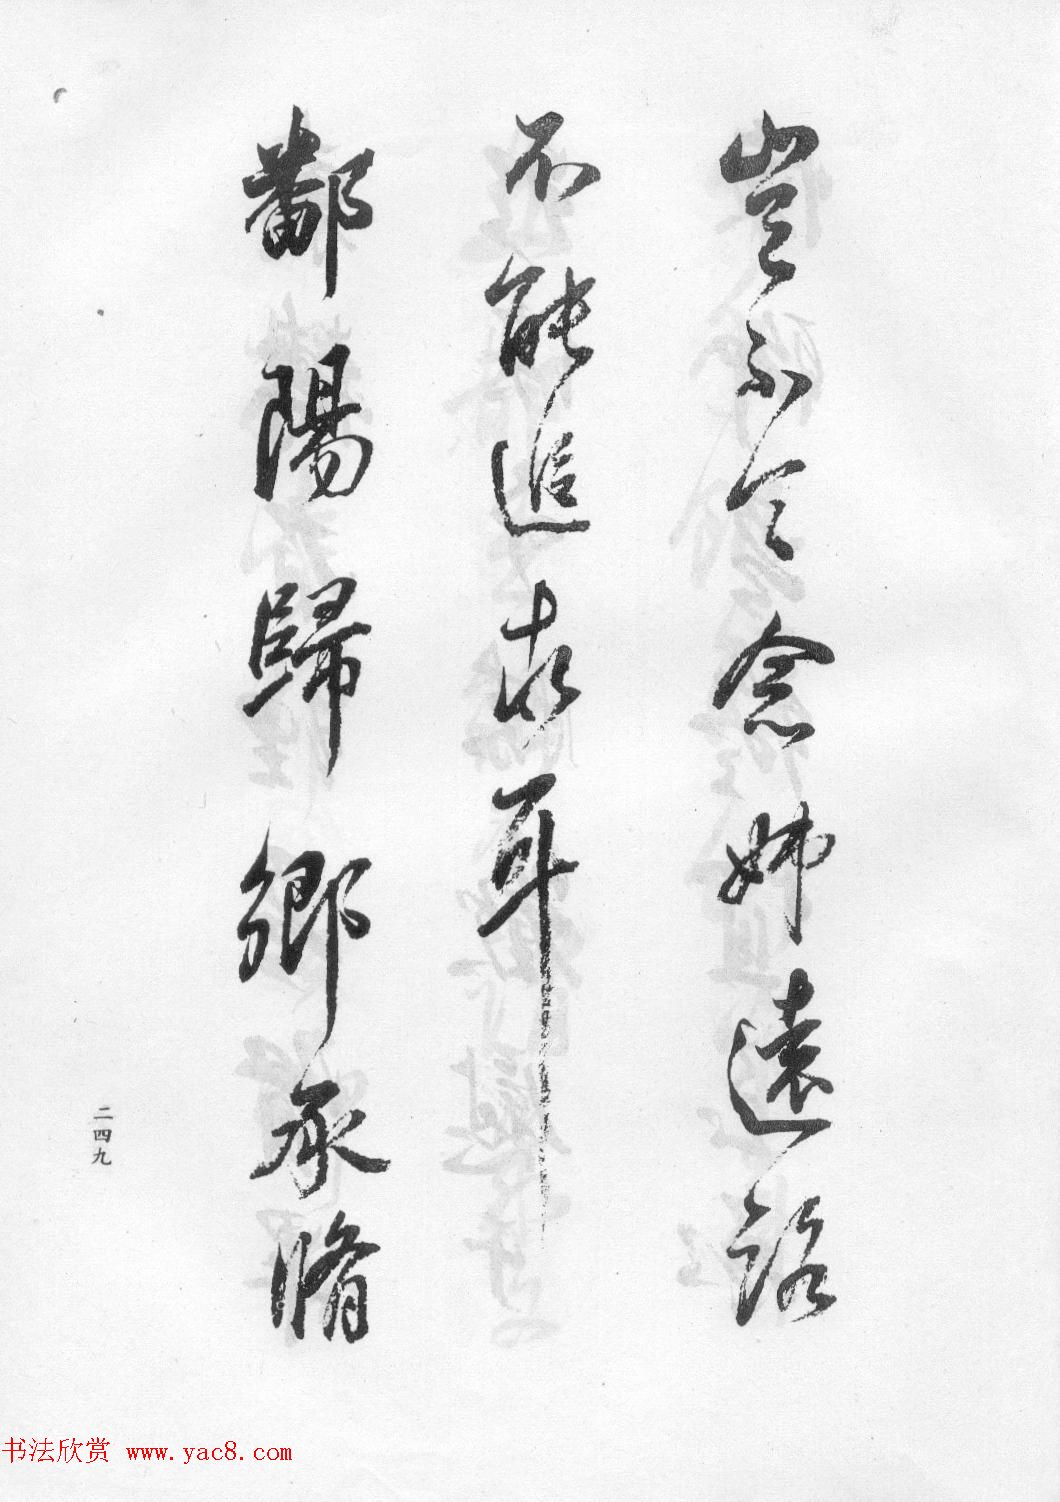 豈不令念姊遠路
不能追求耳
鄱陽歸鄉承脩
二四九
书法欣赏 www.yac8.com